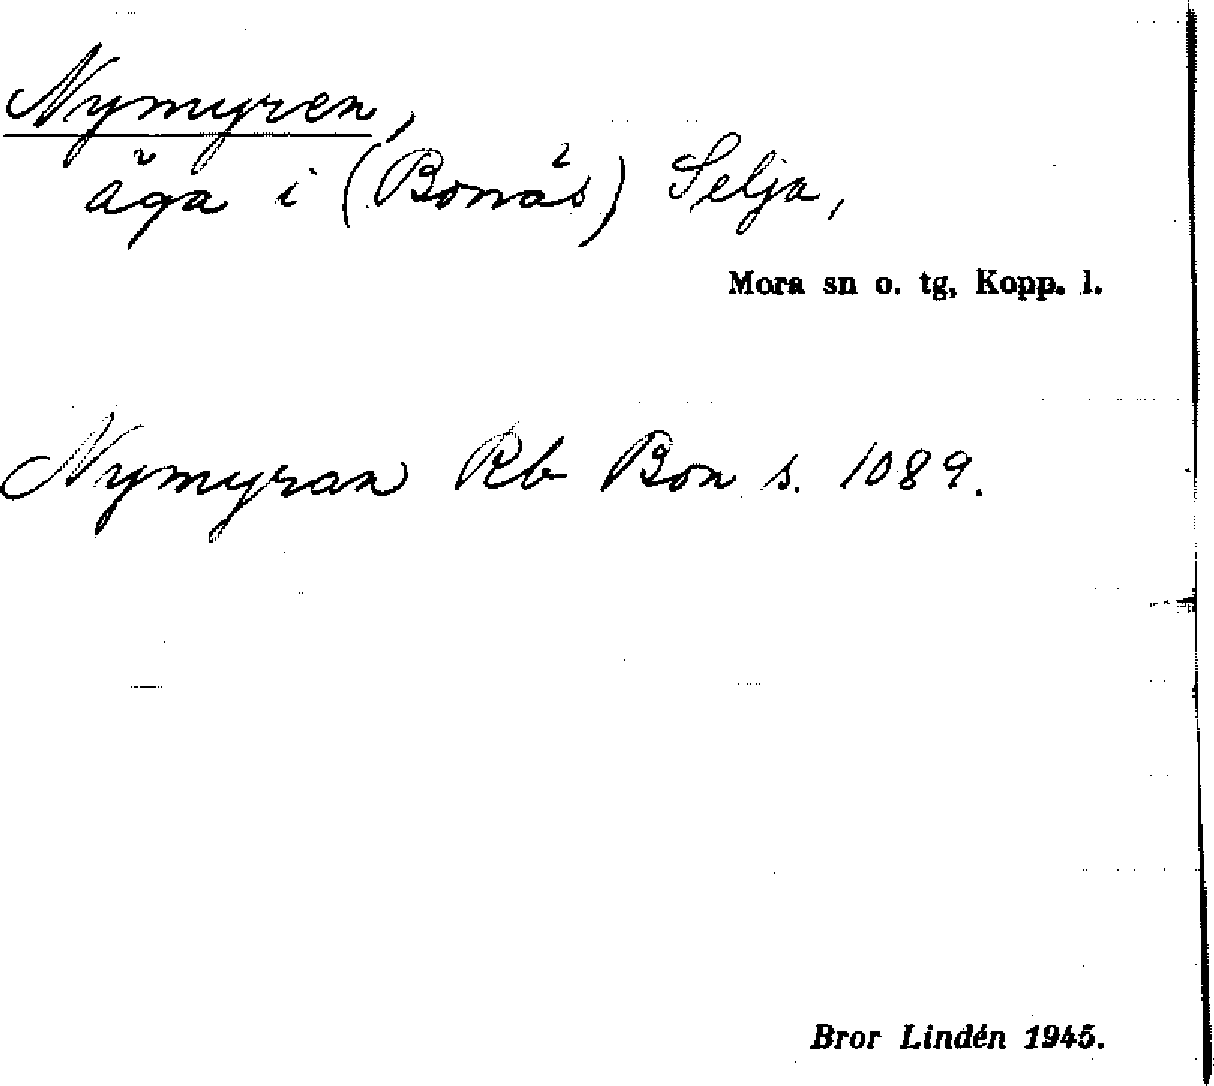 Nymyren,
äga i (Bonäs) Selja,
Mora sn o. tg, Kopp. l.
Nymyran Rb Bon s. 1089.
Bror Lindén 1945.